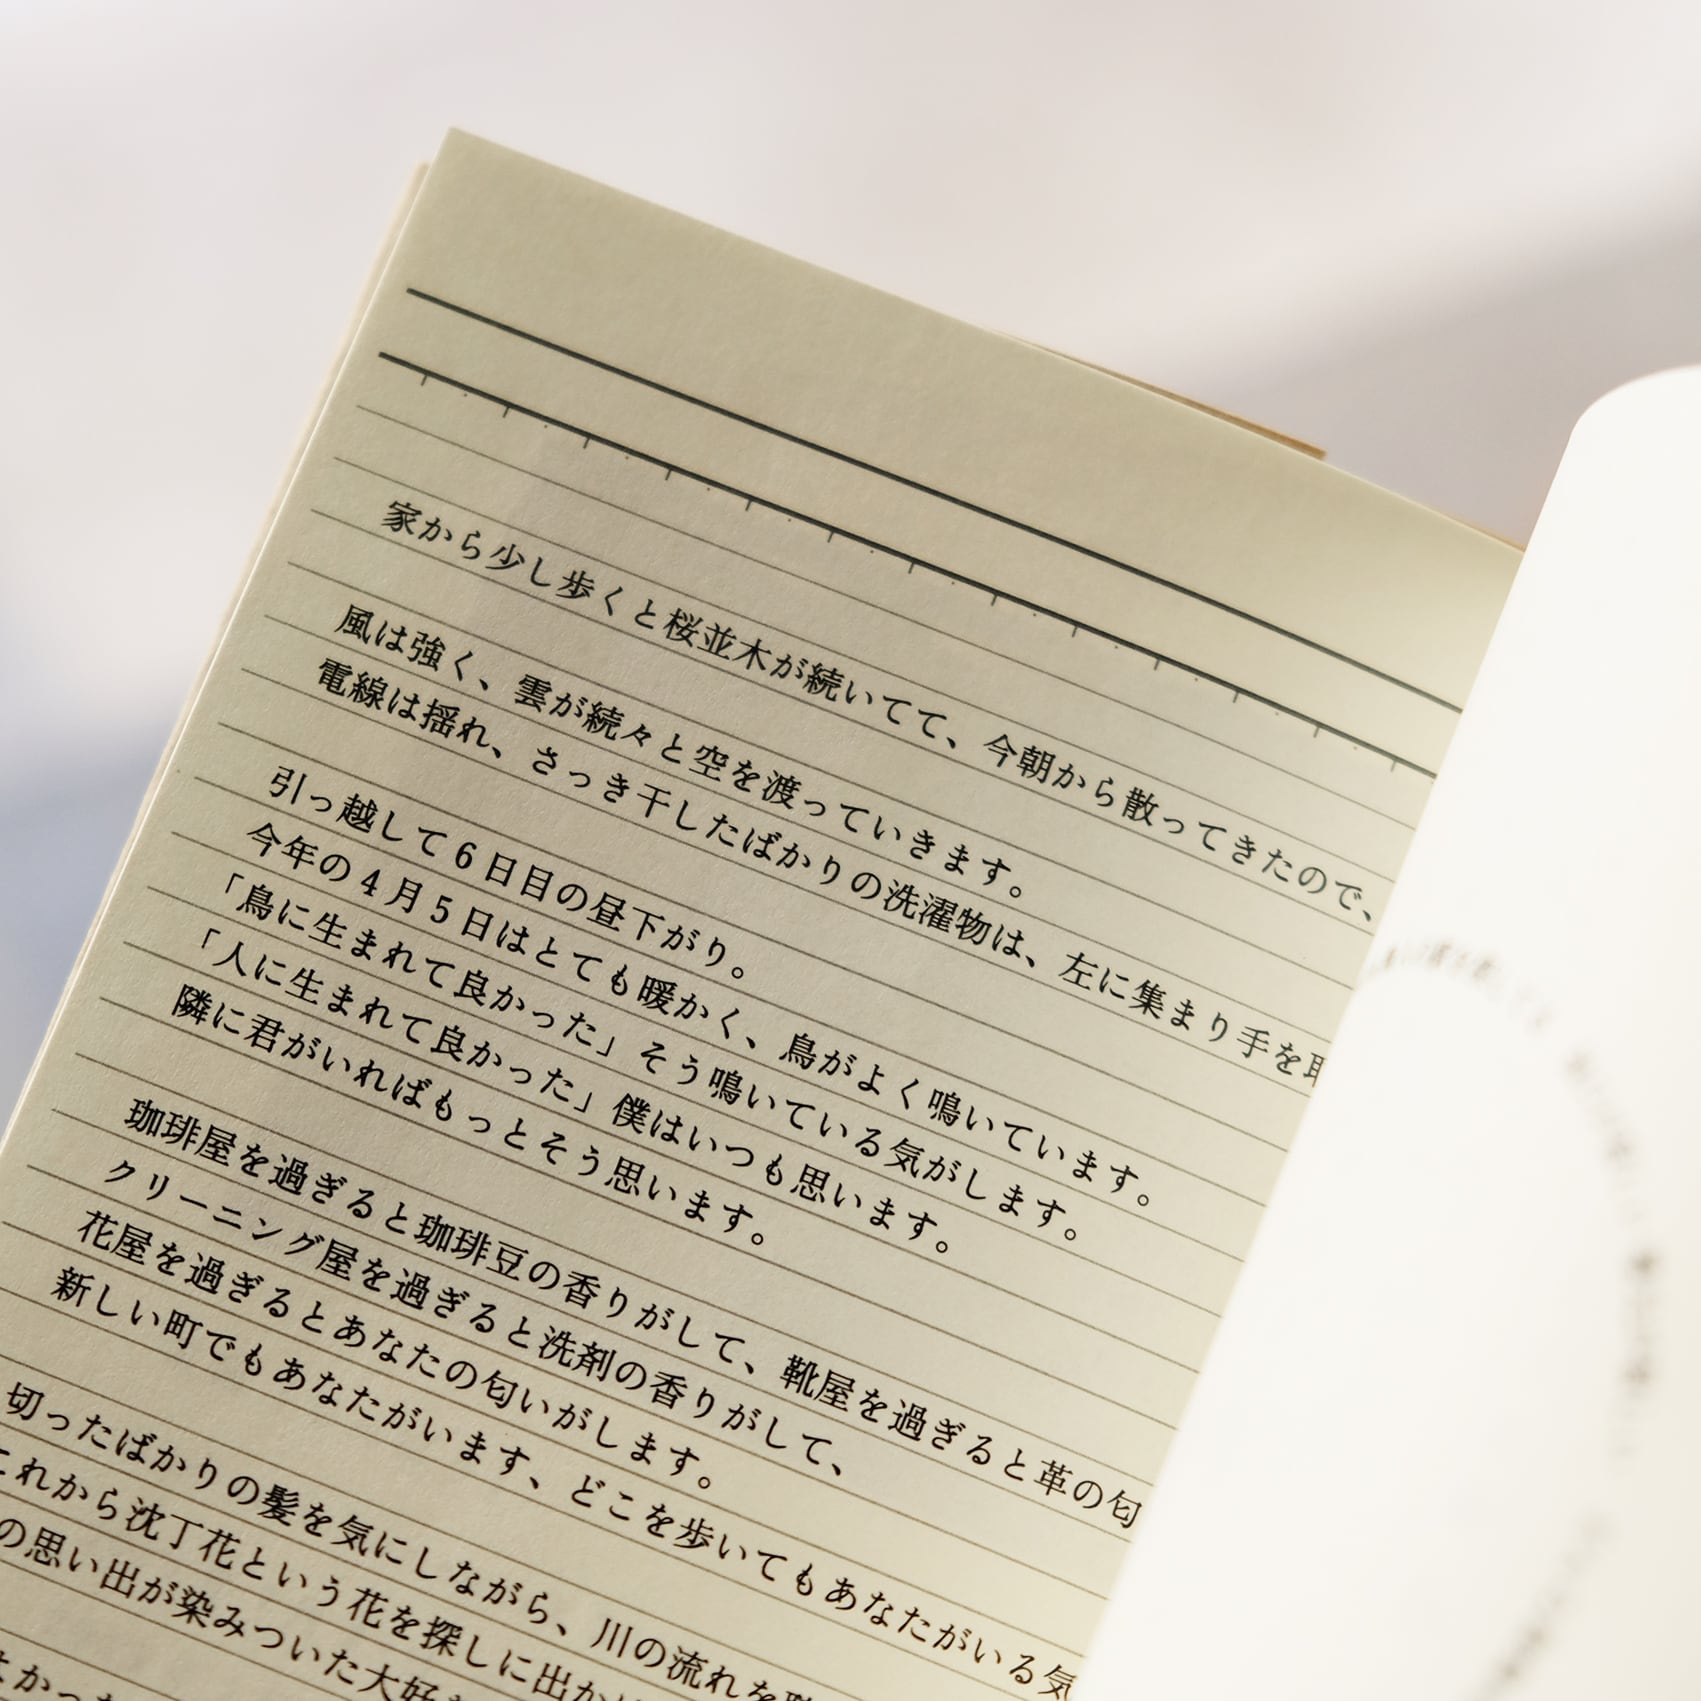 家から少し歩くと桜並木が続いてて、今朝から散ってきたので、
風は強く、雲が続々と空を渡っていきます。
電線は揺れ、さっき干したばかりの洗濯物は、左に集まり手を
引っ越して6日目の昼下がり。
今年の4月5日はとても暖かく、鳥がよく鳴いています。
「鳥に生まれて良かった」そう鳴いている気がします。
「人に生まれて良かった」僕はいつも思います。
隣に君がいればもっとそう思います。
珈琲屋を過ぎると珈琲豆の香りがして、靴屋を過ぎると革の匂
クリーニング屋を過ぎると洗剤の香りがして、
花屋を過ぎるとあなたの匂いがします。
新しい町でもあなたがいます、どこを歩いてもあなたがいる気
切ったばかりの髪を気にしながら、川の流れを
これから沈丁花という花を探しに出か
の思い出が染みついた大好